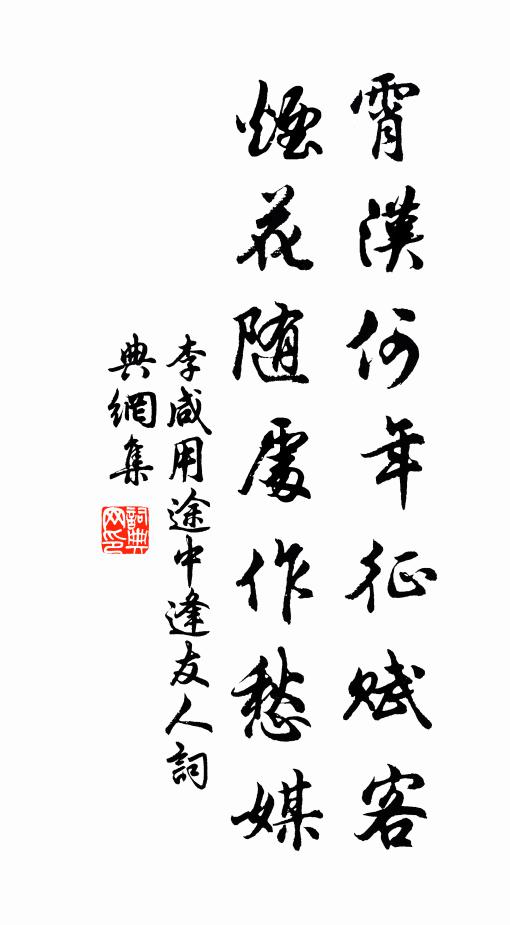 霄漢何年征赋客
煙花随處作愁媒
李咸用途中逢友人詞
典網集
詞典网印